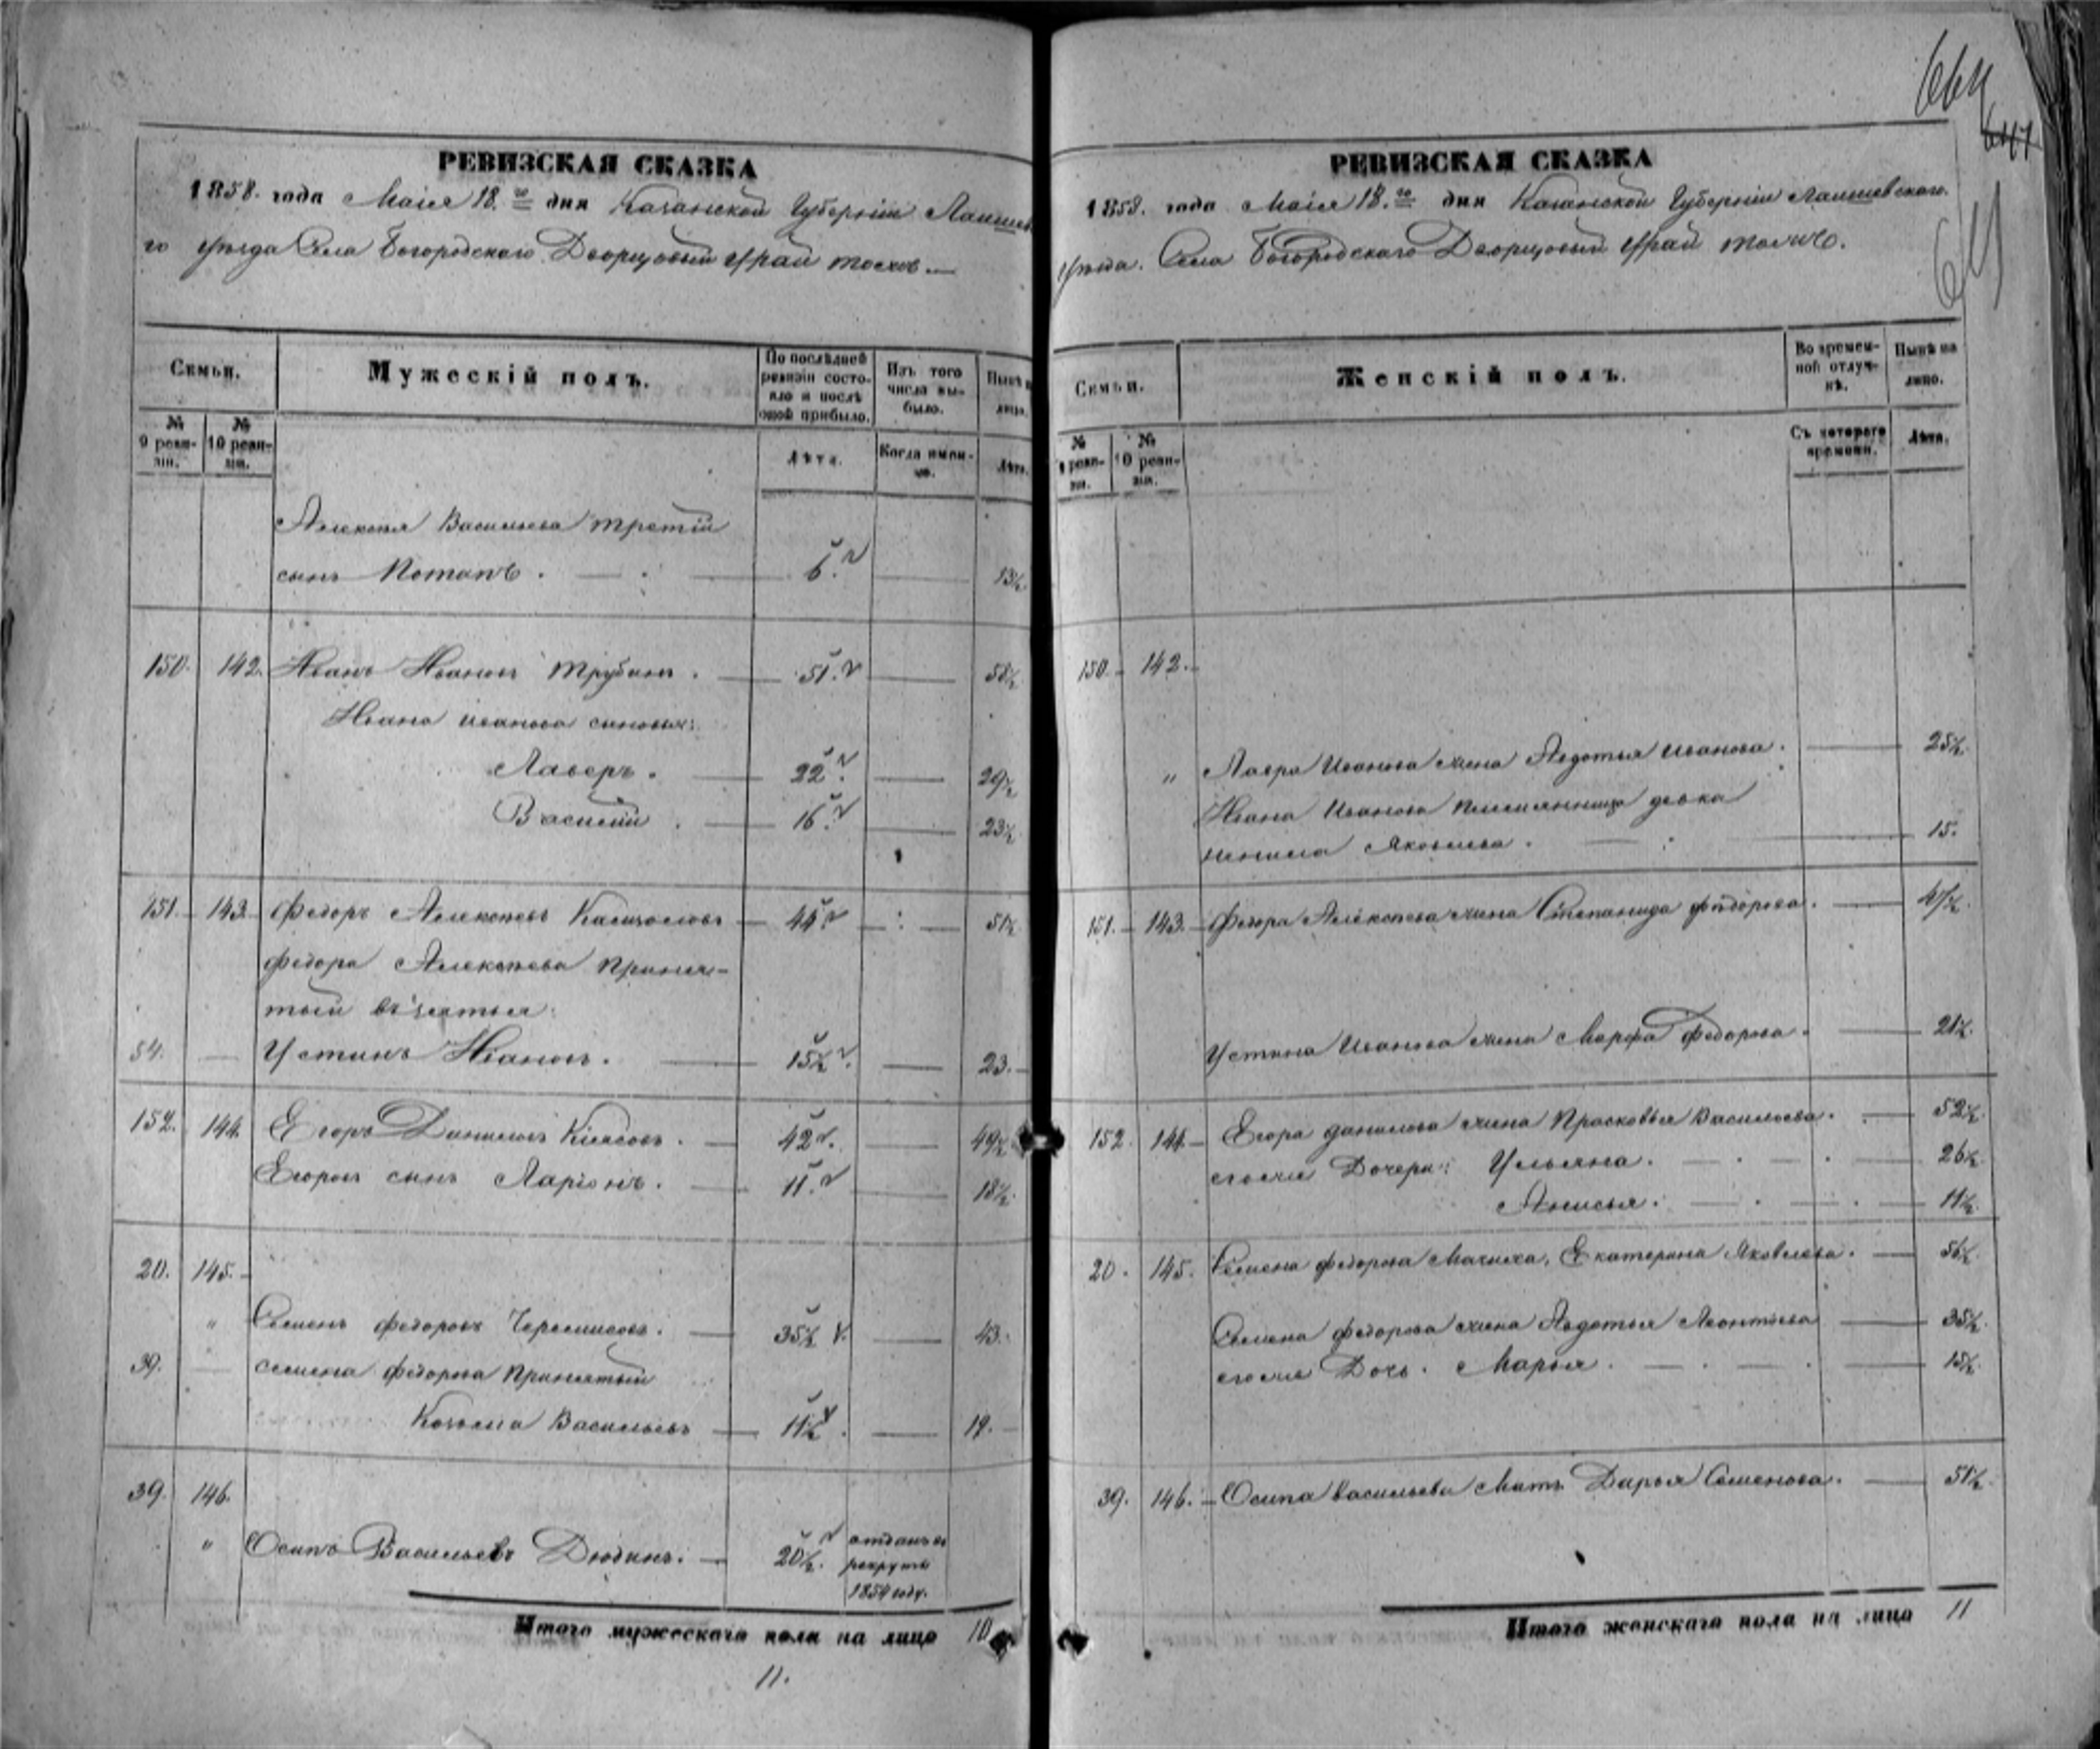 664
647
641
РЕВИЗСКАЯ СКАЗКА
1858. года Маія 18.го дня Казанской Губерніи Лаишев
го уѣзда Села Богородскаго Дворцовый
Семьи.
Мужескій полъ.
По послѣдней ревизіи состояло и послѣ оной прибыло.
Изъ того числа выбыло.
Нынѣ на лицо.
№ 9 ревизіи.
№ 10 ревизіи.
Лѣта.
Когда именно.
Лѣта.
Алексѣя Васильева третій
сынъ Потапъ. 6. 13½
150. 142. Иванъ Ивановъ Трубинъ. 51. 58½
Ивана Иванова сыновья:
Лаверъ. 22. 29½
Василій. 16. 23½
151. 143. Федоръ Алексѣевъ 44. 51½
Федора Алексѣева приня-
тый въ зятья
54. Устинъ Ивановъ. 15½. 23.
152. 144. Егоръ Даниловъ 42. 49½
Егоровъ сынъ Ларіонъ. 11. 18½
20. 145.
" Семенъ Федоровъ Черемисовъ. 35½ 43.
39. Семена Федорова принятый
Козьма Васильевъ 11½. 19.
39. 146.
" Осипъ Васильевъ Дюдинъ. 20½. отданъ въ
рекруты
1854 году.
Итого мужескаго пола на лицо 10
11.
РЕВИЗСКАЯ СКАЗКА
1858. года Маія 18.го дня Казанской Губерніи Лаишевскаго
уѣзда. Села Богородскаго Дворцовый
Семьи.
Женскій полъ.
Во временной отлучкѣ.
Нынѣ на лицо.
№ 9 ревизіи.
№ 10 ревизіи.
Съ котораго времени.
Лѣта.
150. 142.
" Лавра Иванова жена Авдотья Иванова. 25½.
Ивана Иванова племянница девка
Яковлева. 15.
151. 143. Федора Алексѣева жена Степанида Федорова. 47½.
Устина Иванова жена Марфа Федорова. 21½.
152 144 Егора Данилова жена Прасковья Васильева. 52½.
его же Дочери: Ульяна. 26½.
Анисья. 11½.
20. 145. Семена Федорова Мачиха, Екатерина Яковлева. 56½.
Семена Федорова жена Авдотья Леонтьева 35½.
его же Дочь. Марья. 15½.
39. 146. Осипа Васильева Мать Дарья Семенова. 51½.
Итого женскаго пола на лицо 11